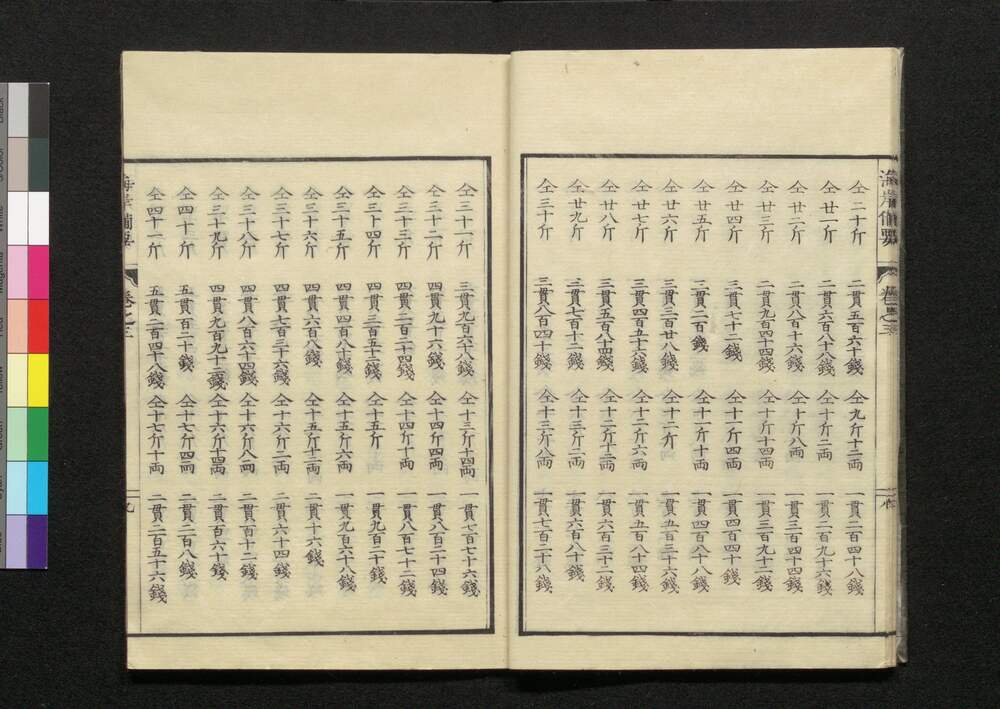 海岸備要
卷之三
仝二十斤 二貫五百六十錢 仝九斤十二両 一貫二百四十八錢
仝廿一斤 二貫六百八十八錢 仝十斤二両 一貫二百九十六錢
仝廿二斤 二貫八百十六錢 仝十斤八両 一貫三百四十四錢
仝廿三斤 二貫九百四十四錢 仝十斤十四両 一貫三百九十二錢
仝廿四斤 三貫七十二錢 仝十一斤四両 一貫四百四十錢
仝廿五斤 三貫二百錢 仝十一斤十両 一貫四百八十八錢
仝廿六斤 三貫三百廿八錢 仝十二斤 一貫五百三十六錢
仝廿七斤 三貫四百五十六錢 仝十二斤六両 一貫五百八十四錢
仝廿八斤 三貫五百八十四錢 仝十二斤十二両 一貫六百三十二錢
仝廿九斤 三貫七百十二錢 仝十三斤二両 一貫六百八十錢
仝三十斤 三貫八百四十錢 仝十三斤八両 一貫七百二十八錢
仝三十一斤 三貫九百六十八錢 仝十三斤十四両 一貫七百七十六錢
仝三十二斤 四貫九十六錢 仝十四斤四両 一貫八百二十四錢
仝三十三斤 四貫二百二十四錢 仝十四斤十両 一貫八百七十二錢
仝三十四斤 四貫三百五十二錢 仝十五斤 一貫九百二十錢
仝三十五斤 四貫四百八十錢 仝十五斤六両 一貫九百六十八錢
仝三十六斤 四貫六百八錢 仝十五斤十二両 二貫十六錢
仝三十七斤 四貫七百三十六錢 仝十六斤二両 二貫六十四錢
仝三十八斤 四貫八百六十四錢 仝十六斤八両 二貫百十二錢
仝三十九斤 四貫九百九十二錢 仝十六斤十四両 二貫百六十錢
仝四十斤 五貫百二十錢 仝十七斤四両 二貫二百八錢
仝四十一斤 五貫二百四十八錢 仝十七斤十両 二貫二百五十六錢
海岸備要
卷之三
九